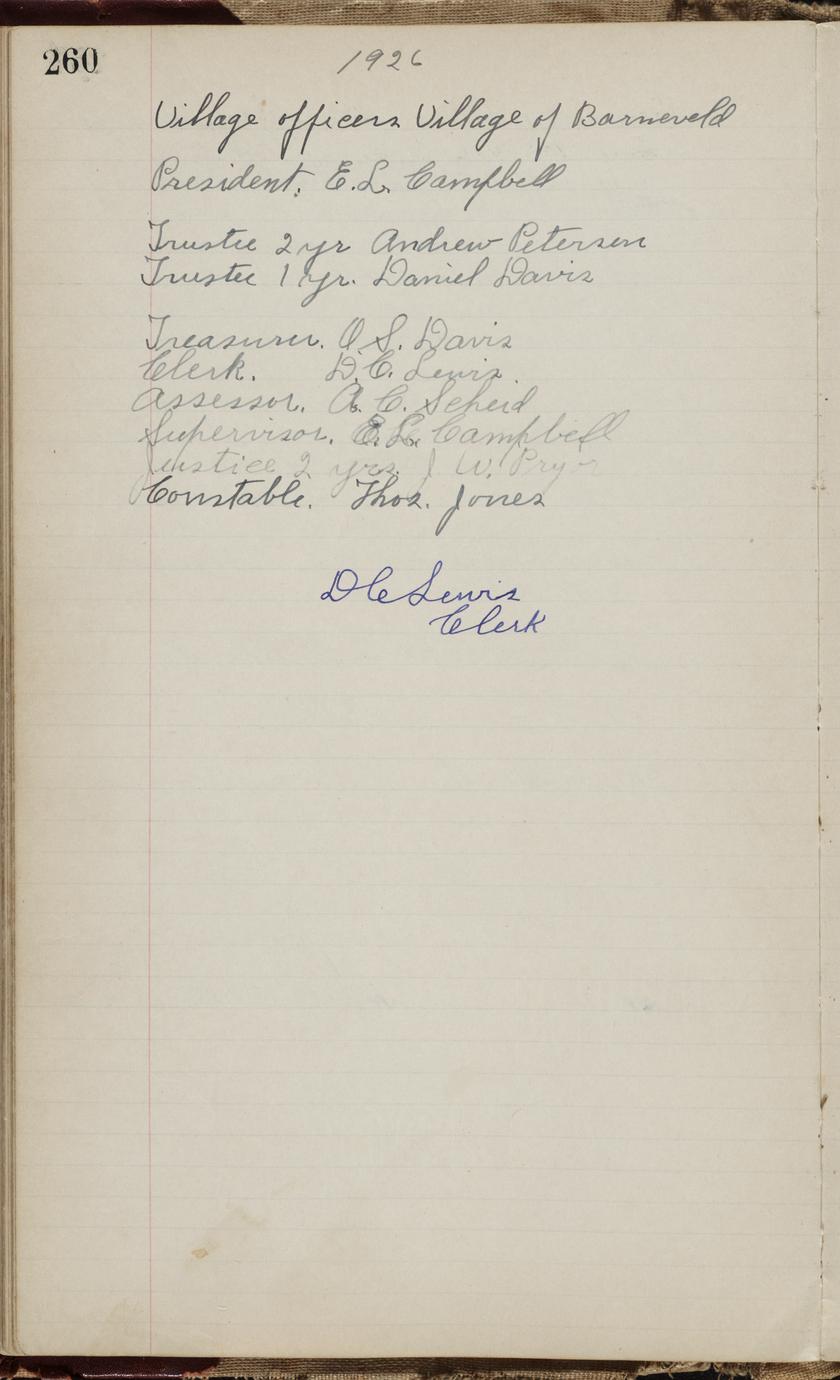 260
1926
Village officers Village of Barneveld
President. E. L. Campbell
Trustee 2 yr Andrew Petersen
Trustee 1 yr. Daniel Davis
Treasurer. O S. Davis
Clerk. D. C. Lewis.
Assessor. A. C. Scheid
Supervisor. E. L. Campbell
Justice 2 yrs. J W. Pryor
Constable. Thos. Jones
D C Lewis
Clerk